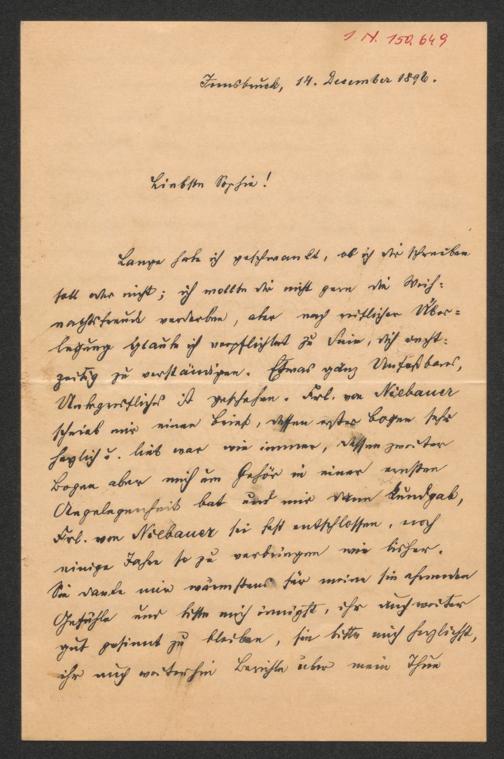 I. N. 150.649
Innsbruck, 14. Dezember 1896.
Liebste Sophie!
Lange habe ich geschwankt, ob ich dir schreiben
soll oder nicht; ich wollte dir nicht gern die Weih-
nachtsfreude verderben, aber nach reiflicher Über-
legung glaube ich verpflichtet zu sein, dich recht-
zeitig zu verständigen. Etwas ganz Unfaßbares,
Unbegreifliches ist geschehen. Frl. von Niebauer
schrieb mir einen Brief, dessen erster Bogen sehr
herzlich u. lieb war wie immer, dessen zweiter
Bogen aber mich um Gehör in einer ernsten
Angelegenheit bat und mir dann kundgab,
Frl. von Niebauer sei fest entschlossen, noch
einige Jahre so zu verbringen wie bisher.
Sie danke mir wärmstens für meine sie ehrenden
Gefühle und bitte mich innigst, ihr auch weiter
gut gesinnt zu bleiben, sie bitte mich herzlichst,
ihr auch weiterhin Berichte über mein Thun